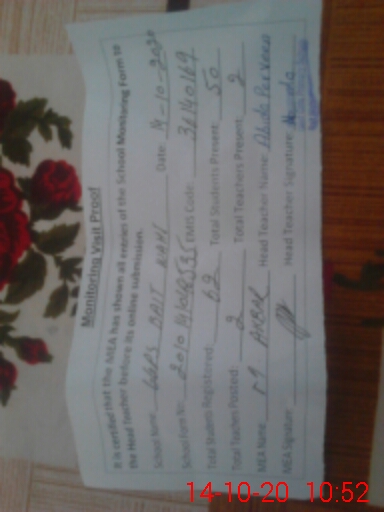 Monitoring Visit Proof
It is certified that the MEA has shown all entries of the School Monitoring Form to
the Head Teacher before its online submission.
School Name: GGPS BAIT WAHI Date: 14-10-2020
School Form No: EMIS Code: 36140169
Total Students Registered: 62 Total Students Present: 50
Total Teachers Posted: 2 Total Teachers Present: 2
MEA Name: M. AKBAR Head Teacher Name: Abida Perveen
MEA Signature: Head Teacher Signature:
14-10-20 10:52